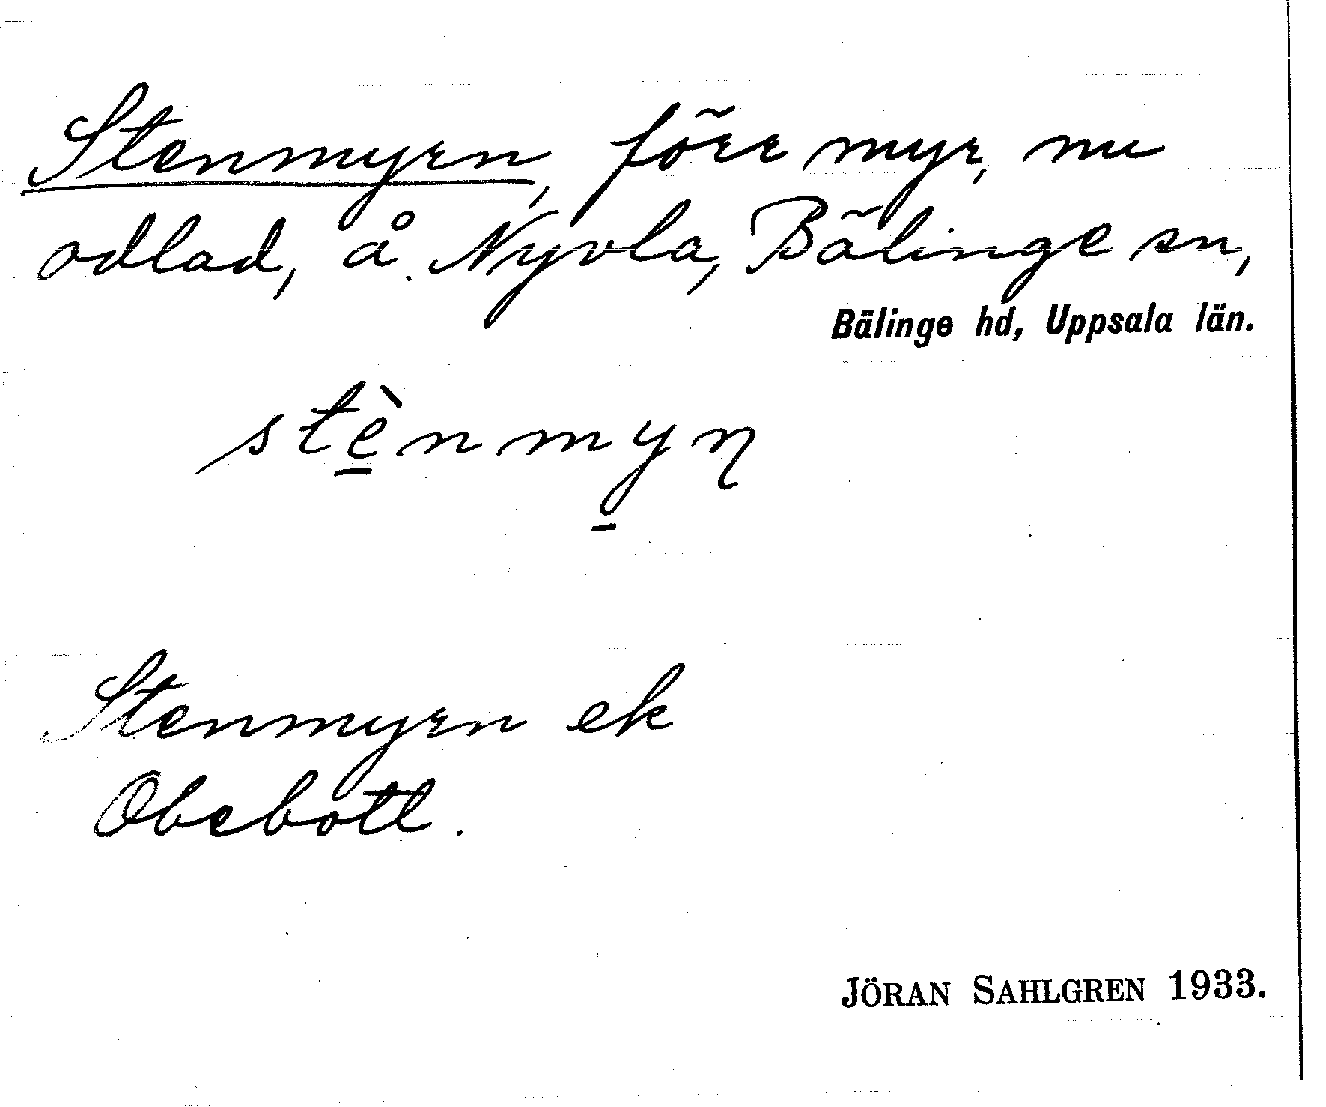 Stenmyrn, förr myr, nu
odlad, å Nyvla, Bälinge sn,
Bälinge hd, Uppsala län.
stè̱nmy̱ɳ
Stenmyrn ek
Obebotl.
JÖRAN SAHLGREN 1933.